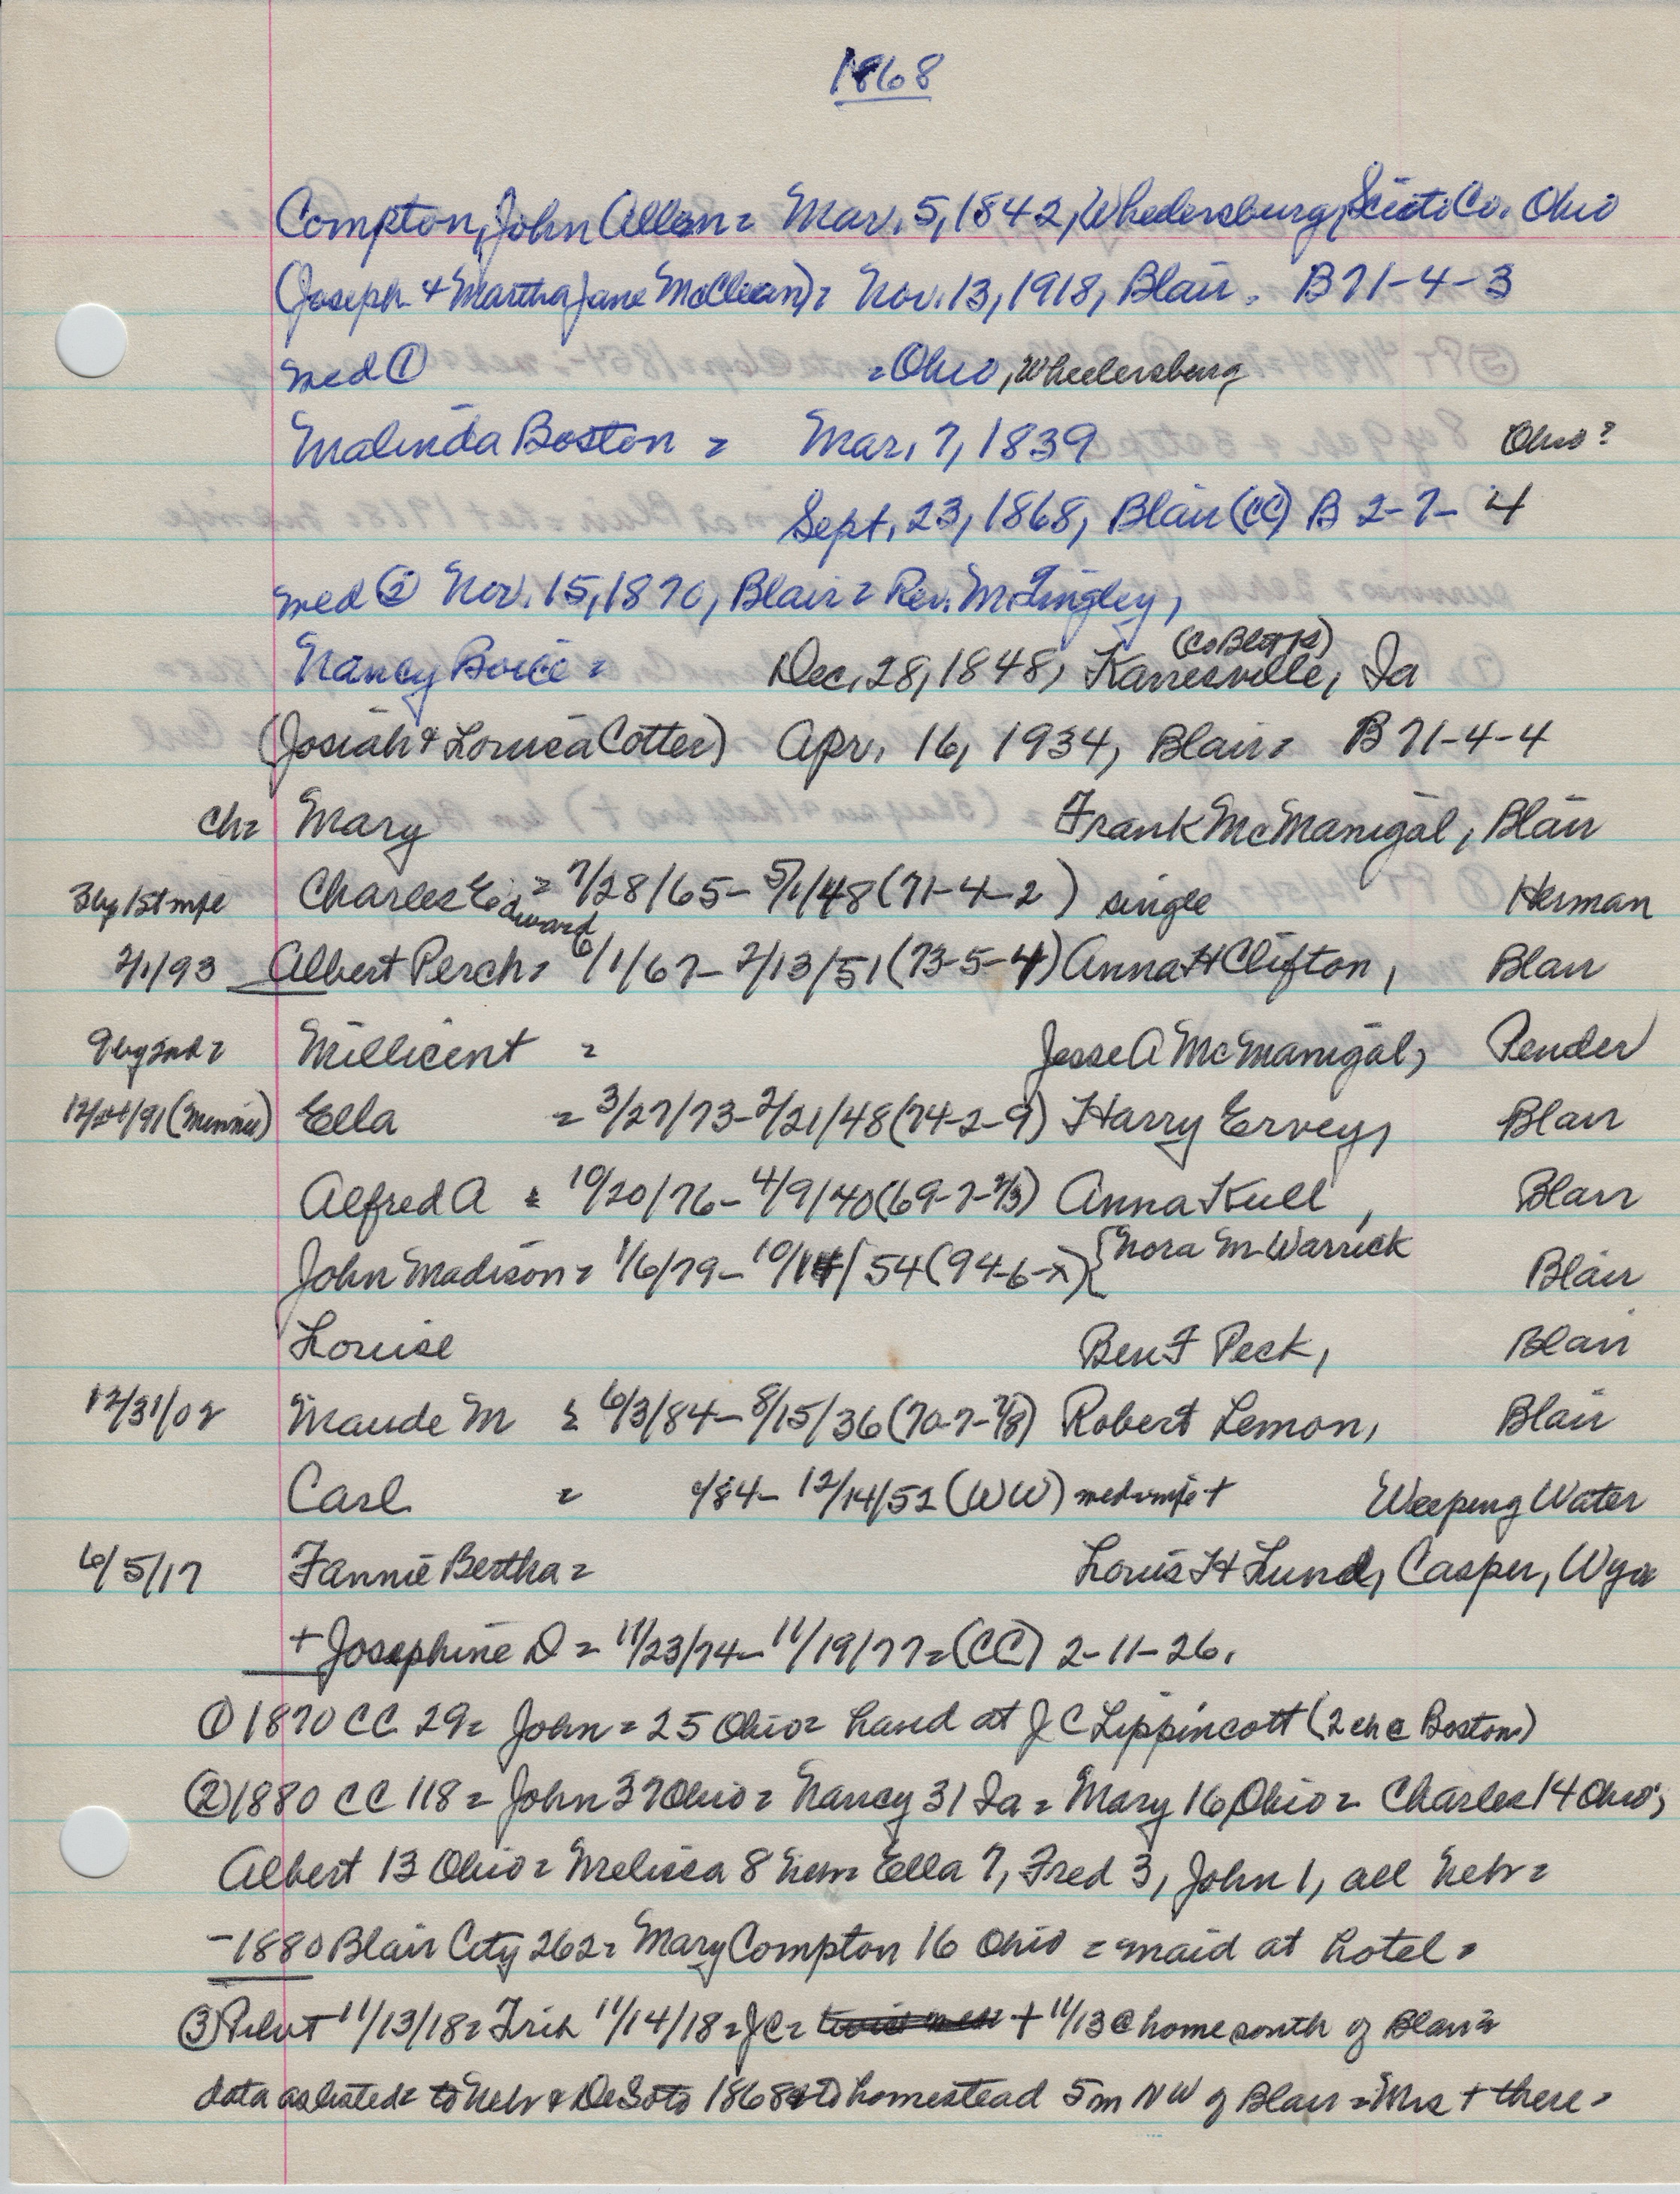 1868
Compton, John Allen = Mar. 5, 1842, Wheelersburg, Scioto Co. Ohio
(Joseph + Martha Jane McClean) = Nov. 13, 1918, Blair. B 71-4-3
med ① = Ohio, Wheelersburg
Malinda Boston = Mar. 7, 1839 Ohio?
Sept. 23, 1868, Blair (CC) B 2-7-4
med ② Nov. 15, 1870, Blair = Rev. McTingley,
(Co Bluffs)
Nancy Boice = Dec. 28, 1848, Kanesville, Ia
(Josiah + Louisa Cotter) Apr. 16, 1934, Blair = B 71-4-4
ch = Mary Frank McManigal, Blair
3 by 1st wife Charles Edward = 7/28/65 - 5/1/48 (71-4-2) single Herman
2/1/93 Albert Perch = 6/1/67 - 2/13/51 (73-5-4) Anna H Clifton, Blair
9 by 2nd = Millicent = Jesse A McManigal, Pender
12/24/91 (Minnie) Ella = 3/27/73 - 2/21/48 (74-2-9) Harry Ervey, Blair
Alfred A = 10/20/76 - 4/9/40 (69-7-2/3) Anna Kull, Blair
John Madison = 1/6/79 - 10/14/54 (94-6-x) { Nora M. Warrick Blair
Louise Ben F Peck, Blair
12/31/02 Maude M = 6/3/84 - 8/15/36 (70-7-7/8) Robert Lemon, Blair
Carl = /84 - 12/14/52 (WW) med wife + Weeping Water
6/5/17 Fannie Bertha = Louis H Lund, Casper, Wyo
+ Josephine D = 11/23/74 - 11/19/77 = (CC) 2-11-26.
① 1870 CC 29 = John = 25 Ohio = hand at J C Lippincott (2 ch @ Boston)
② 1880 CC 118 = John 37 Ohio = Nancy 31 Ia = Mary 16 Ohio = Charles 14 Ohio;
Albert 13 Ohio = Melissa 8 Neb = Ella 7, Fred 3, John 1, all Nebr =
- 1880 Blair City 262 = Mary Compton 16 Ohio = maid at hotel =
③ Pilot 11/13/18 = Trib 11/14/18 = JC = + 11/13 @ home south of Blair =
data as listed = to Nebr & DeSoto 1868 = to homestead 5m NW of Blair = Mrs + there =